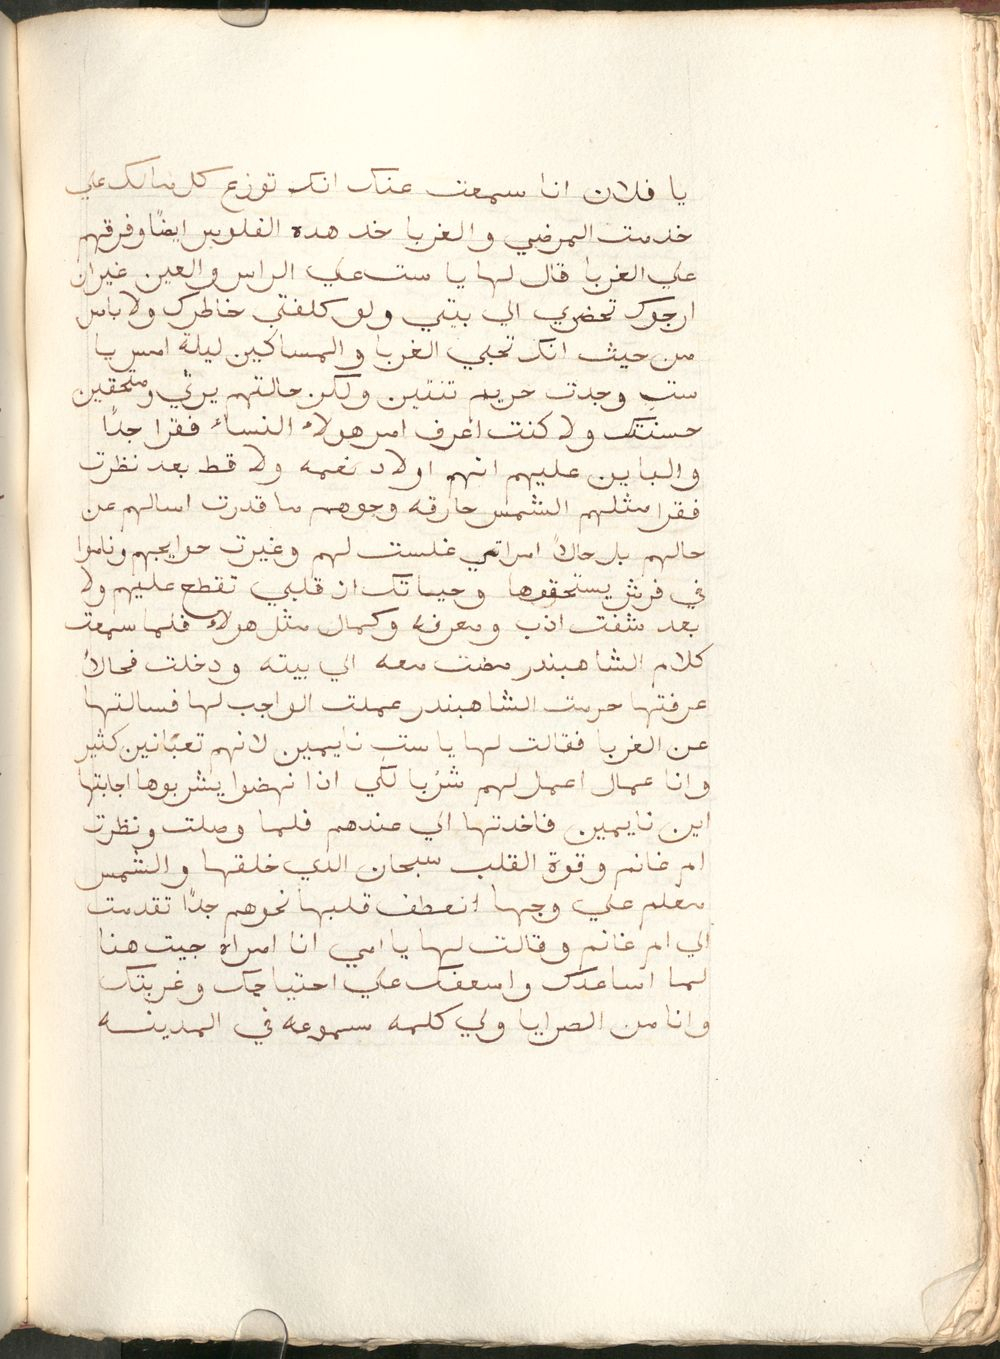 يا فلان انا سمعت عنك انك توزع كل مالك علي
خدمت المرضي والغربا خد هده الفلوس ايضًا وفرقهم
علي الغربا قال لها يا ست علي الراس والعين غير ان
ارجوك تحضري الي بيتي ولو كلفتي خاطرك ولا باس
من حيث انك تحبي الغربا والمساكين ليلة امس يا
ستِ وجدت حريم تنتين ولكن حالتهم يرثي ومتحقين
حسنتك ولا كنت اعرف امر هولاء النساء فقرا جدًا
والباين عليهم انهم اولاد نعمه ولا قط بعد نظرت
فقرا مثلهم الشمس حارقه وجوههم ما قدرت اسالهم عن
حالهم بل حالاً امراتي غلست لهم وغيرت حوايجهم وناموا
في فرش يستحقوها وحياتك ان قلبي تقطع عليهم ولا
بعد شفت ادب ومعرفه وكمال مثل هولاء فلما سمعت
كلام الشاهبندر مضت معه الي بيته ودخلت فحالاً
عرفتها حرمت الشاهبندر عملت الواجب لها فسالتها
عن الغربا فقالت لها يا ستِ نايمين لانهم تعبّانين كثير
وانا عمال اعمل لهم شرُبا لكي اذا نهضوا يشربوها اجابتها
اين نايمين فاخدتها الي عندهم فلما وصلت ونظرت
ام غانم وقوة القلب سبحان الدي خلقها والشمس
معلم علي وجها انعطف قلبها نحوهم جدًا تقدمت
الي ام غانم وقالت لها يا امي انا امراه جيت هنا
لما اساعدك واسعفك علي احتياجك وغربتك
وانا من الصرايا ولي كلمه مسموعه في المدينه